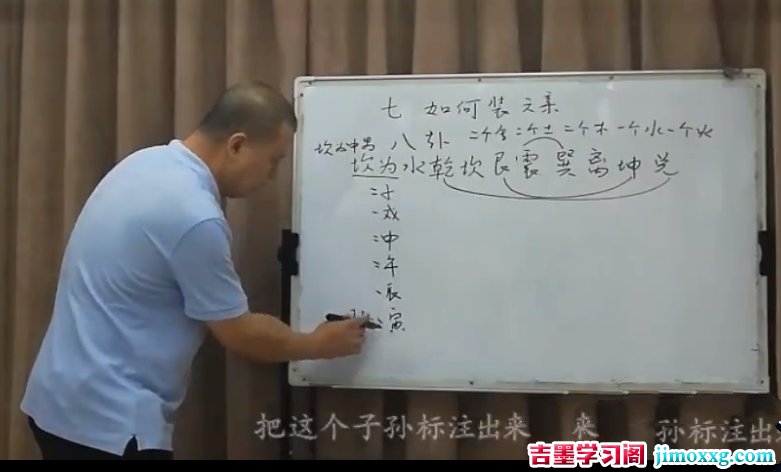 七 如何装六亲
坎为中男 八卦 二个金 二个土 二个木 一个水 一个火
坎为水 乾坎艮震巽离坤兑
子
戌
申
午
辰
寅
把这个子孙标注出来 来 孙标注出
吉墨学习阁 jimoxxg.com